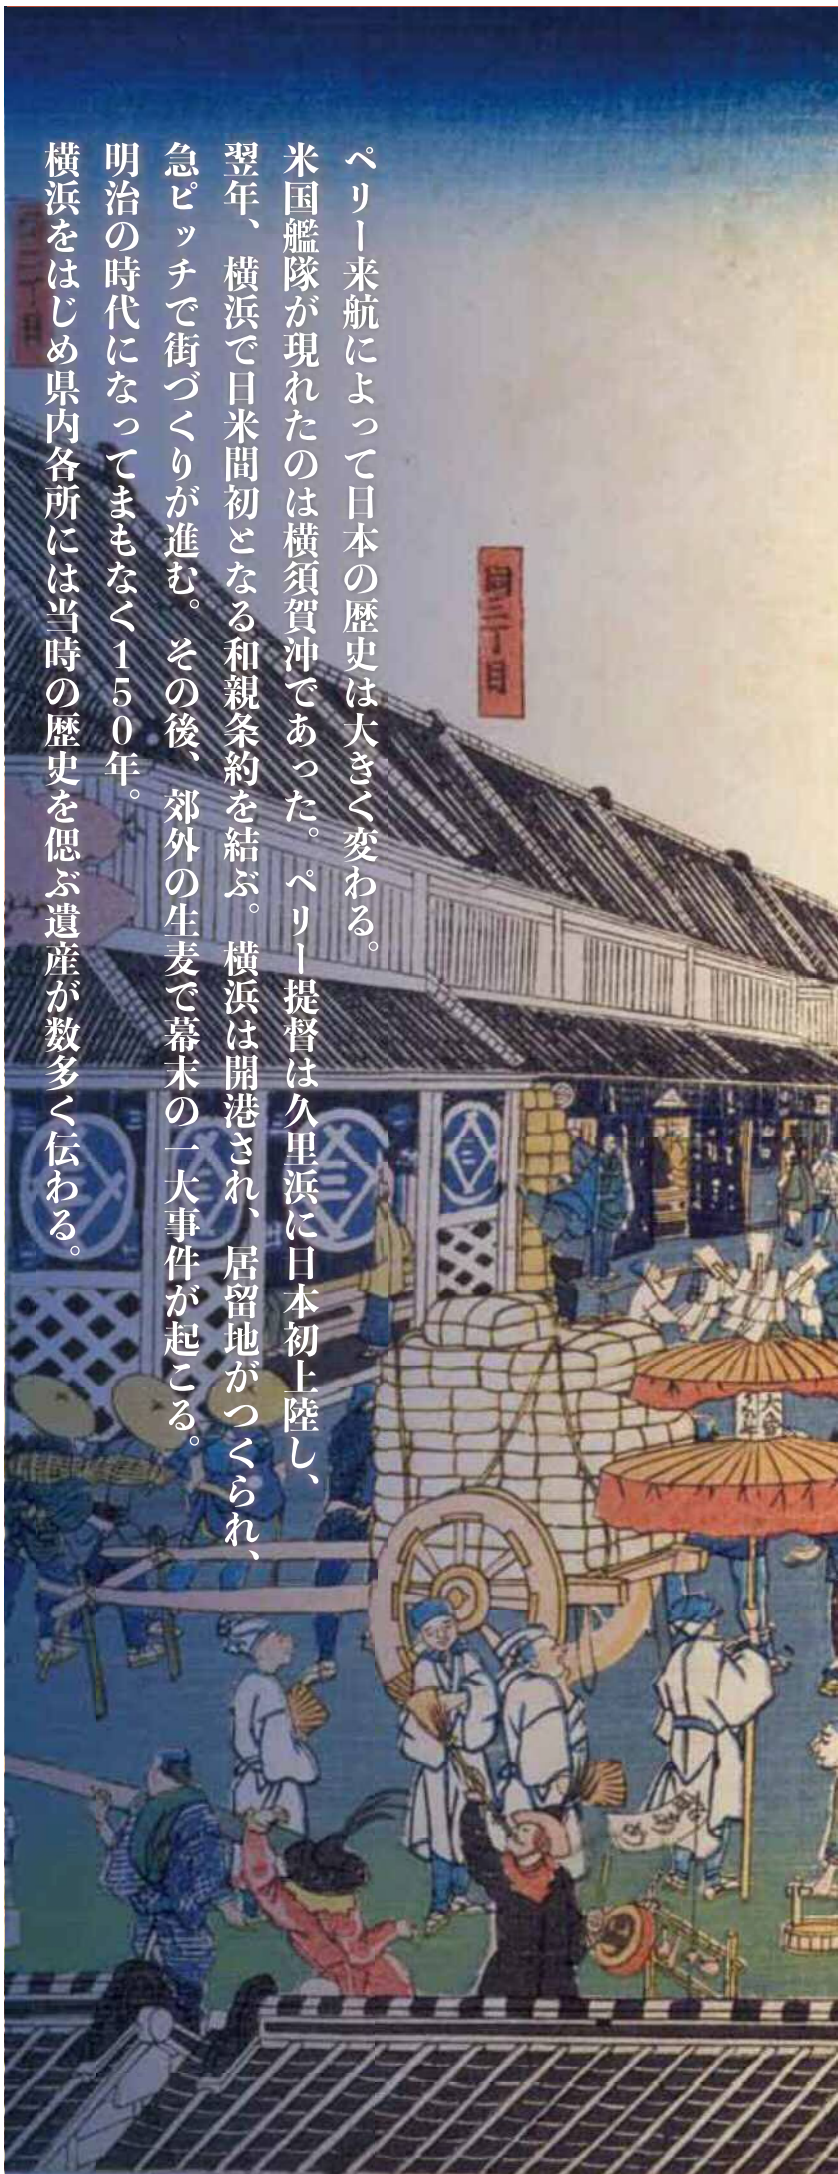 ペリー来航によって日本の歴史は大きく変わる。
米国艦隊が現れたのは横須賀沖であった。ペリー提督は久里浜に日本初上陸し、
翌年、横浜で日米間初となる和親条約を結ぶ。横浜は開港され、居留地がつくられ、
急ピッチで街づくりが進む。その後、郊外の生麦で幕末の一大事件が起こる。
明治の時代になってまもなく150年。
横浜をはじめ県内各所には当時の歴史を偲ぶ遺産が数多く伝わる。
三丁目
二丁目